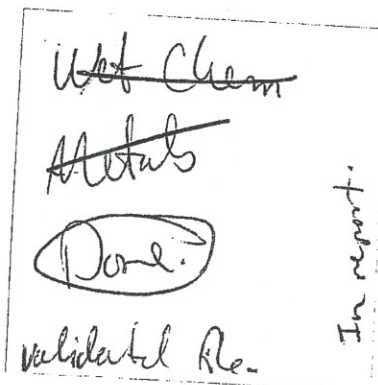 Wet Chem
Metals
Done.
validated file.
In report.